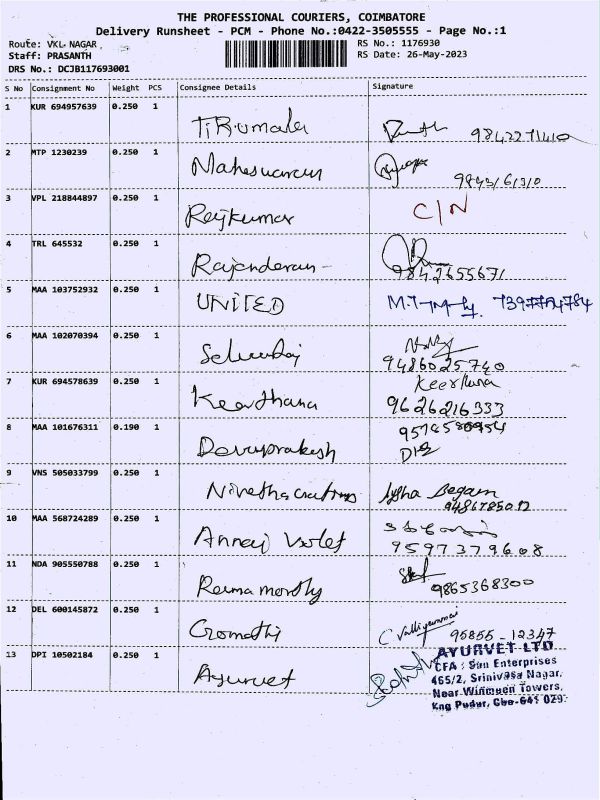 THE PROFESSIONAL COURIERS, COIMBATORE
Delivery Runsheet - PCM - Phone No.:0422-3505555 - Page No.:1
Route: VKL NAGAR
Staff: PRASANTH
DRS No.: DCJB117693001
RS No.: 1176930
RS Date: 26-May-2023
S No Consignment No Weight PCS Consignee Details Signature
1 KUR 694957639 0.250 1 TiRumala
2 MTP 1230239 0.250 1 Maheswaran
3 VPL 218844897 0.250 1 Rajkumar C/N
4 TRL 645532 0.250 1 Rajenderan 9842655671
5 MAA 103752932 0.250 1 UNITED
6 MAA 102070394 0.250 1 Selvaraj
9486025740
7 KUR 694578639 0.250 1 Keerthana Keerthana
9626216333
8 MAA 101676311 0.190 1 Devaprakash
9 VNS 505033799 0.250 1 Aysha Begam
9486785012
10 MAA 568724289 0.250 1 Annaj Violet
9597379608
11 NDA 905550788 0.250 1 Rama morthy 9865368300
12 DEL 600145872 0.250 1 Gomathi C Valliyammai 95855-12347
13 DPI 10502184 0.250 1 Ayurvet
AYURVET LTD
CFA : Sun Enterprises
465/2, Srinivasa Nagar,
Near Winmeen Towers,
Kng Pudur, Cbe-641 029.